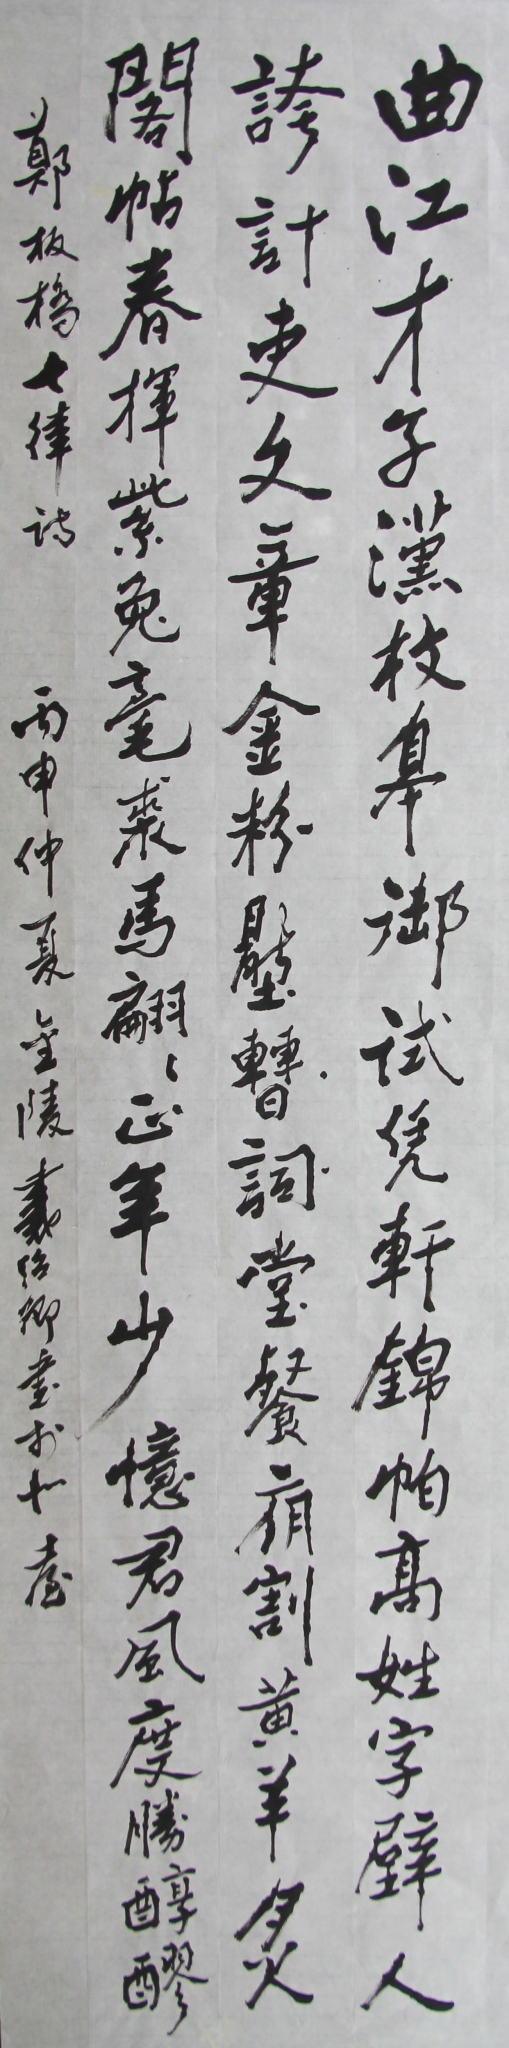 曲江才子枚皐御試凭軒錦帕高姓字壁人
誇計吏文章金粉壓曹詞堂餐割黃羊炙
閣帖春揮紫兔毫裘馬翩〻正年少憶君風度勝醇醪
鄭板橋七律詩 丙申仲夏金陵卿書於